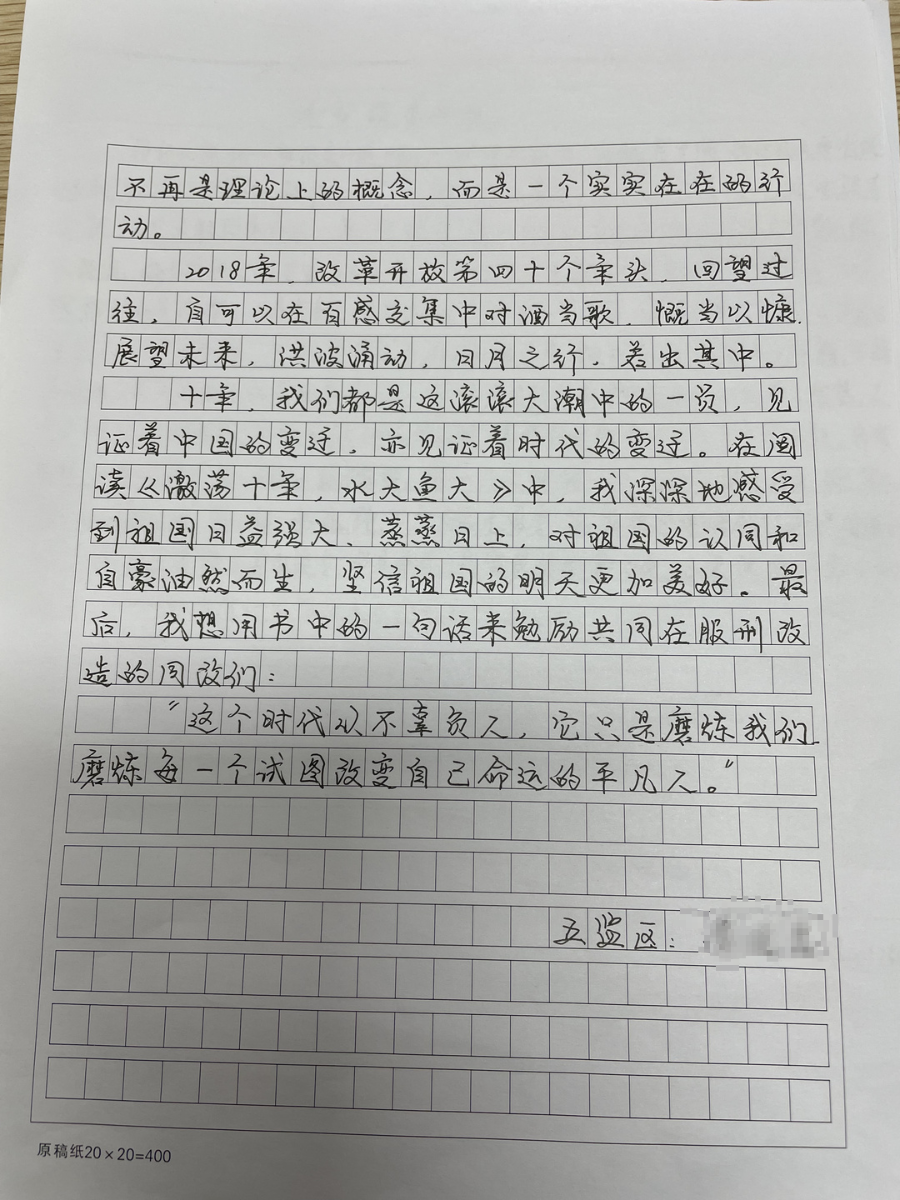 不再是理论上的概念，而是一个实实在在的行
动。
2018年，改革开放第四十个年头，回望过
往，自可以在百感交集中对酒当歌，慨当以慷.
展望未来，洪波涌动，日月之行，若出其中。
十年，我们都是这滚滚大潮中的一员，见
证着中国的变迁，亦见证着时代的变迁。在阅
读《激荡十年，水大鱼大》中，我深深地感受
到祖国日益强大、蒸蒸日上，对祖国的认同和
自豪油然而生，坚信祖国的明天更加美好。最
后，我想用书中的一句话来勉励共同在服刑改
造的同改们：
“这个时代从不辜负人，它只是磨炼我们
磨炼每一个试图改变自己命运的平凡人。”
五监区：
原稿纸20×20=400